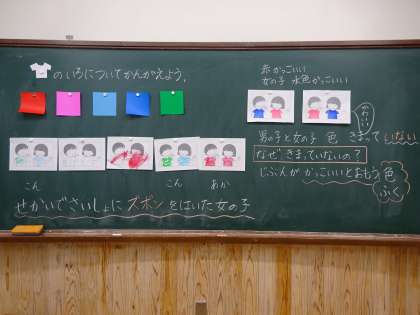 のいろについてかんがえよう。
赤かっこいい
女の子 水色かっこいい
かわいい
男の子と女の子 色 きまっていない
なぜ、きまっていないの？
じぶんが かっこいいとおもう 色
ふく
こん
こん
あか
せかいでさいしょに ズボン をはいた女の子